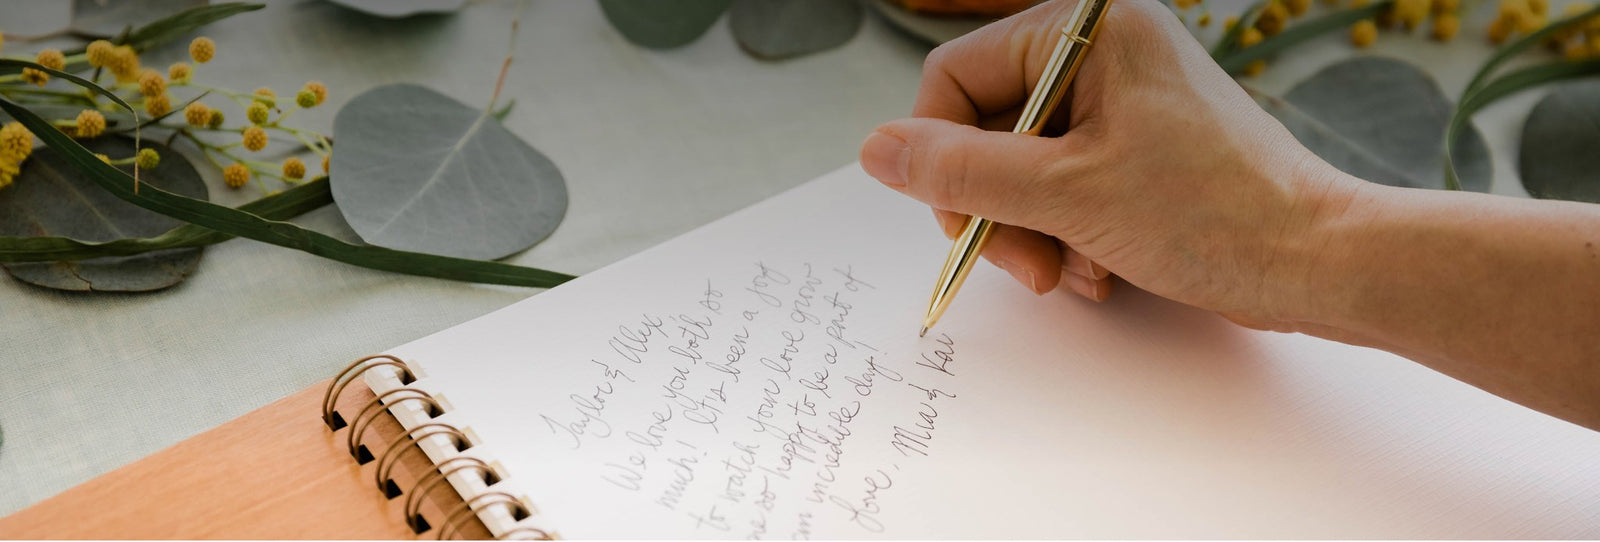 Taylor & Alex
We love you both so
much! It's been a joy
to watch your love grow
so happy to be a part of
incredible day!
love, Mia & Kai